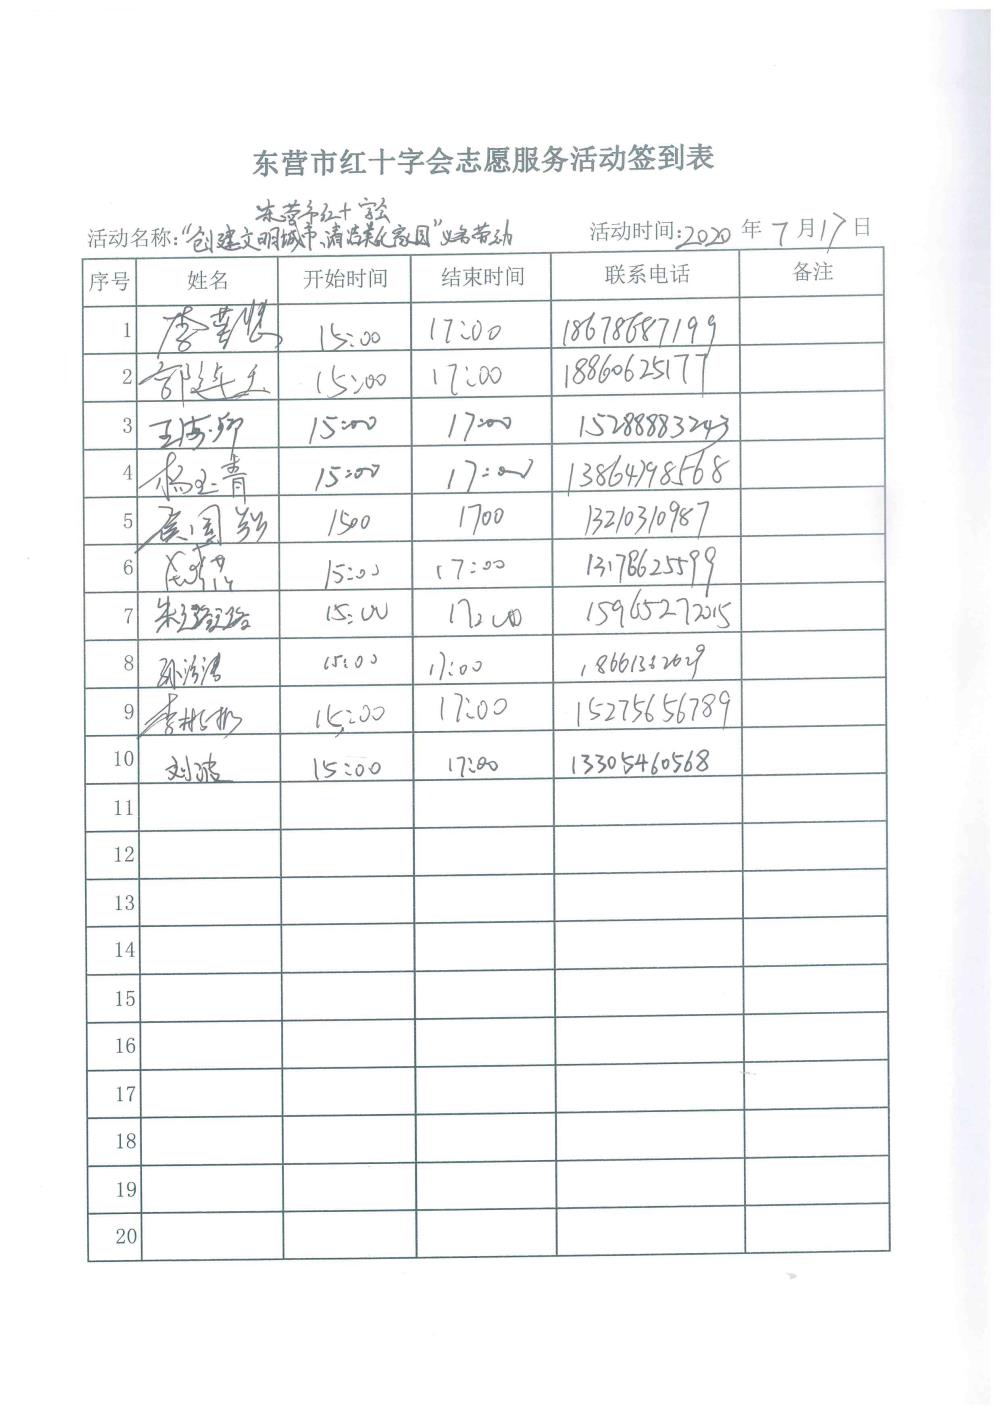 东营市红十字会志愿服务活动签到表
东营市红十字会
活动名称:"创建文明城市、清洁美化家园"义务劳动 活动时间:2020 年 7 月 17 日
序号 姓名 开始时间 结束时间 联系电话 备注
1 李 15:00 17:00 18678687199
2 15:00 17:00 18860625177
3 王海卿 15:00 17:00 15288883243
4 杨玉青 15:00 17:00 13864798568
5 国 1500 1700 13210310987
6 15:00 17:00 13178625599
7 朱璐璐 15:00 17:00 15965272015
8 孙 15:00 17:00
9 李彬彬 15:00 17:00 15275656789
10 刘波 15:00 17:00 13305460568
11
12
13
14
15
16
17
18
19
20